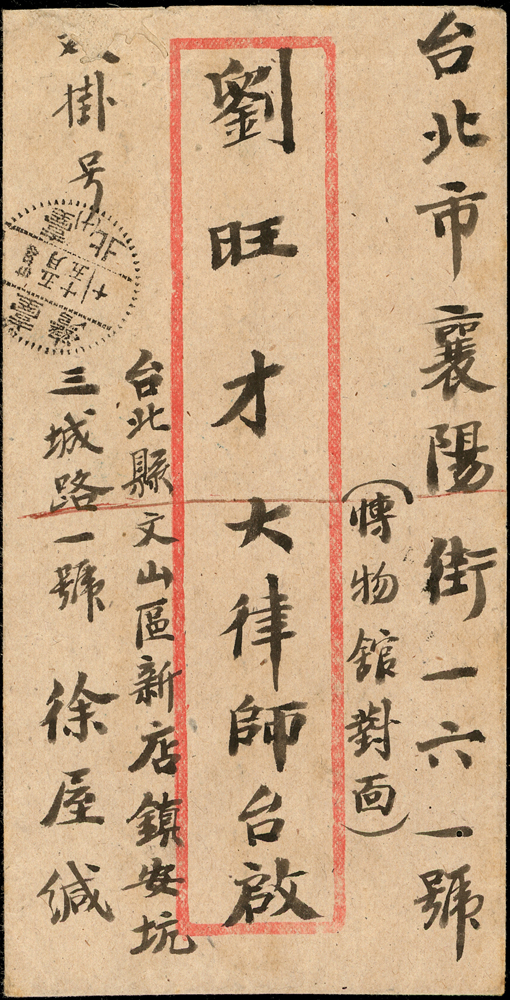 台北市襄陽街一六一號
（博物舘對面）
劉旺才大律師台啟
台北縣文山區新店鎮安坑
三城路一號 徐屋緘
掛号
臺灣
臺北